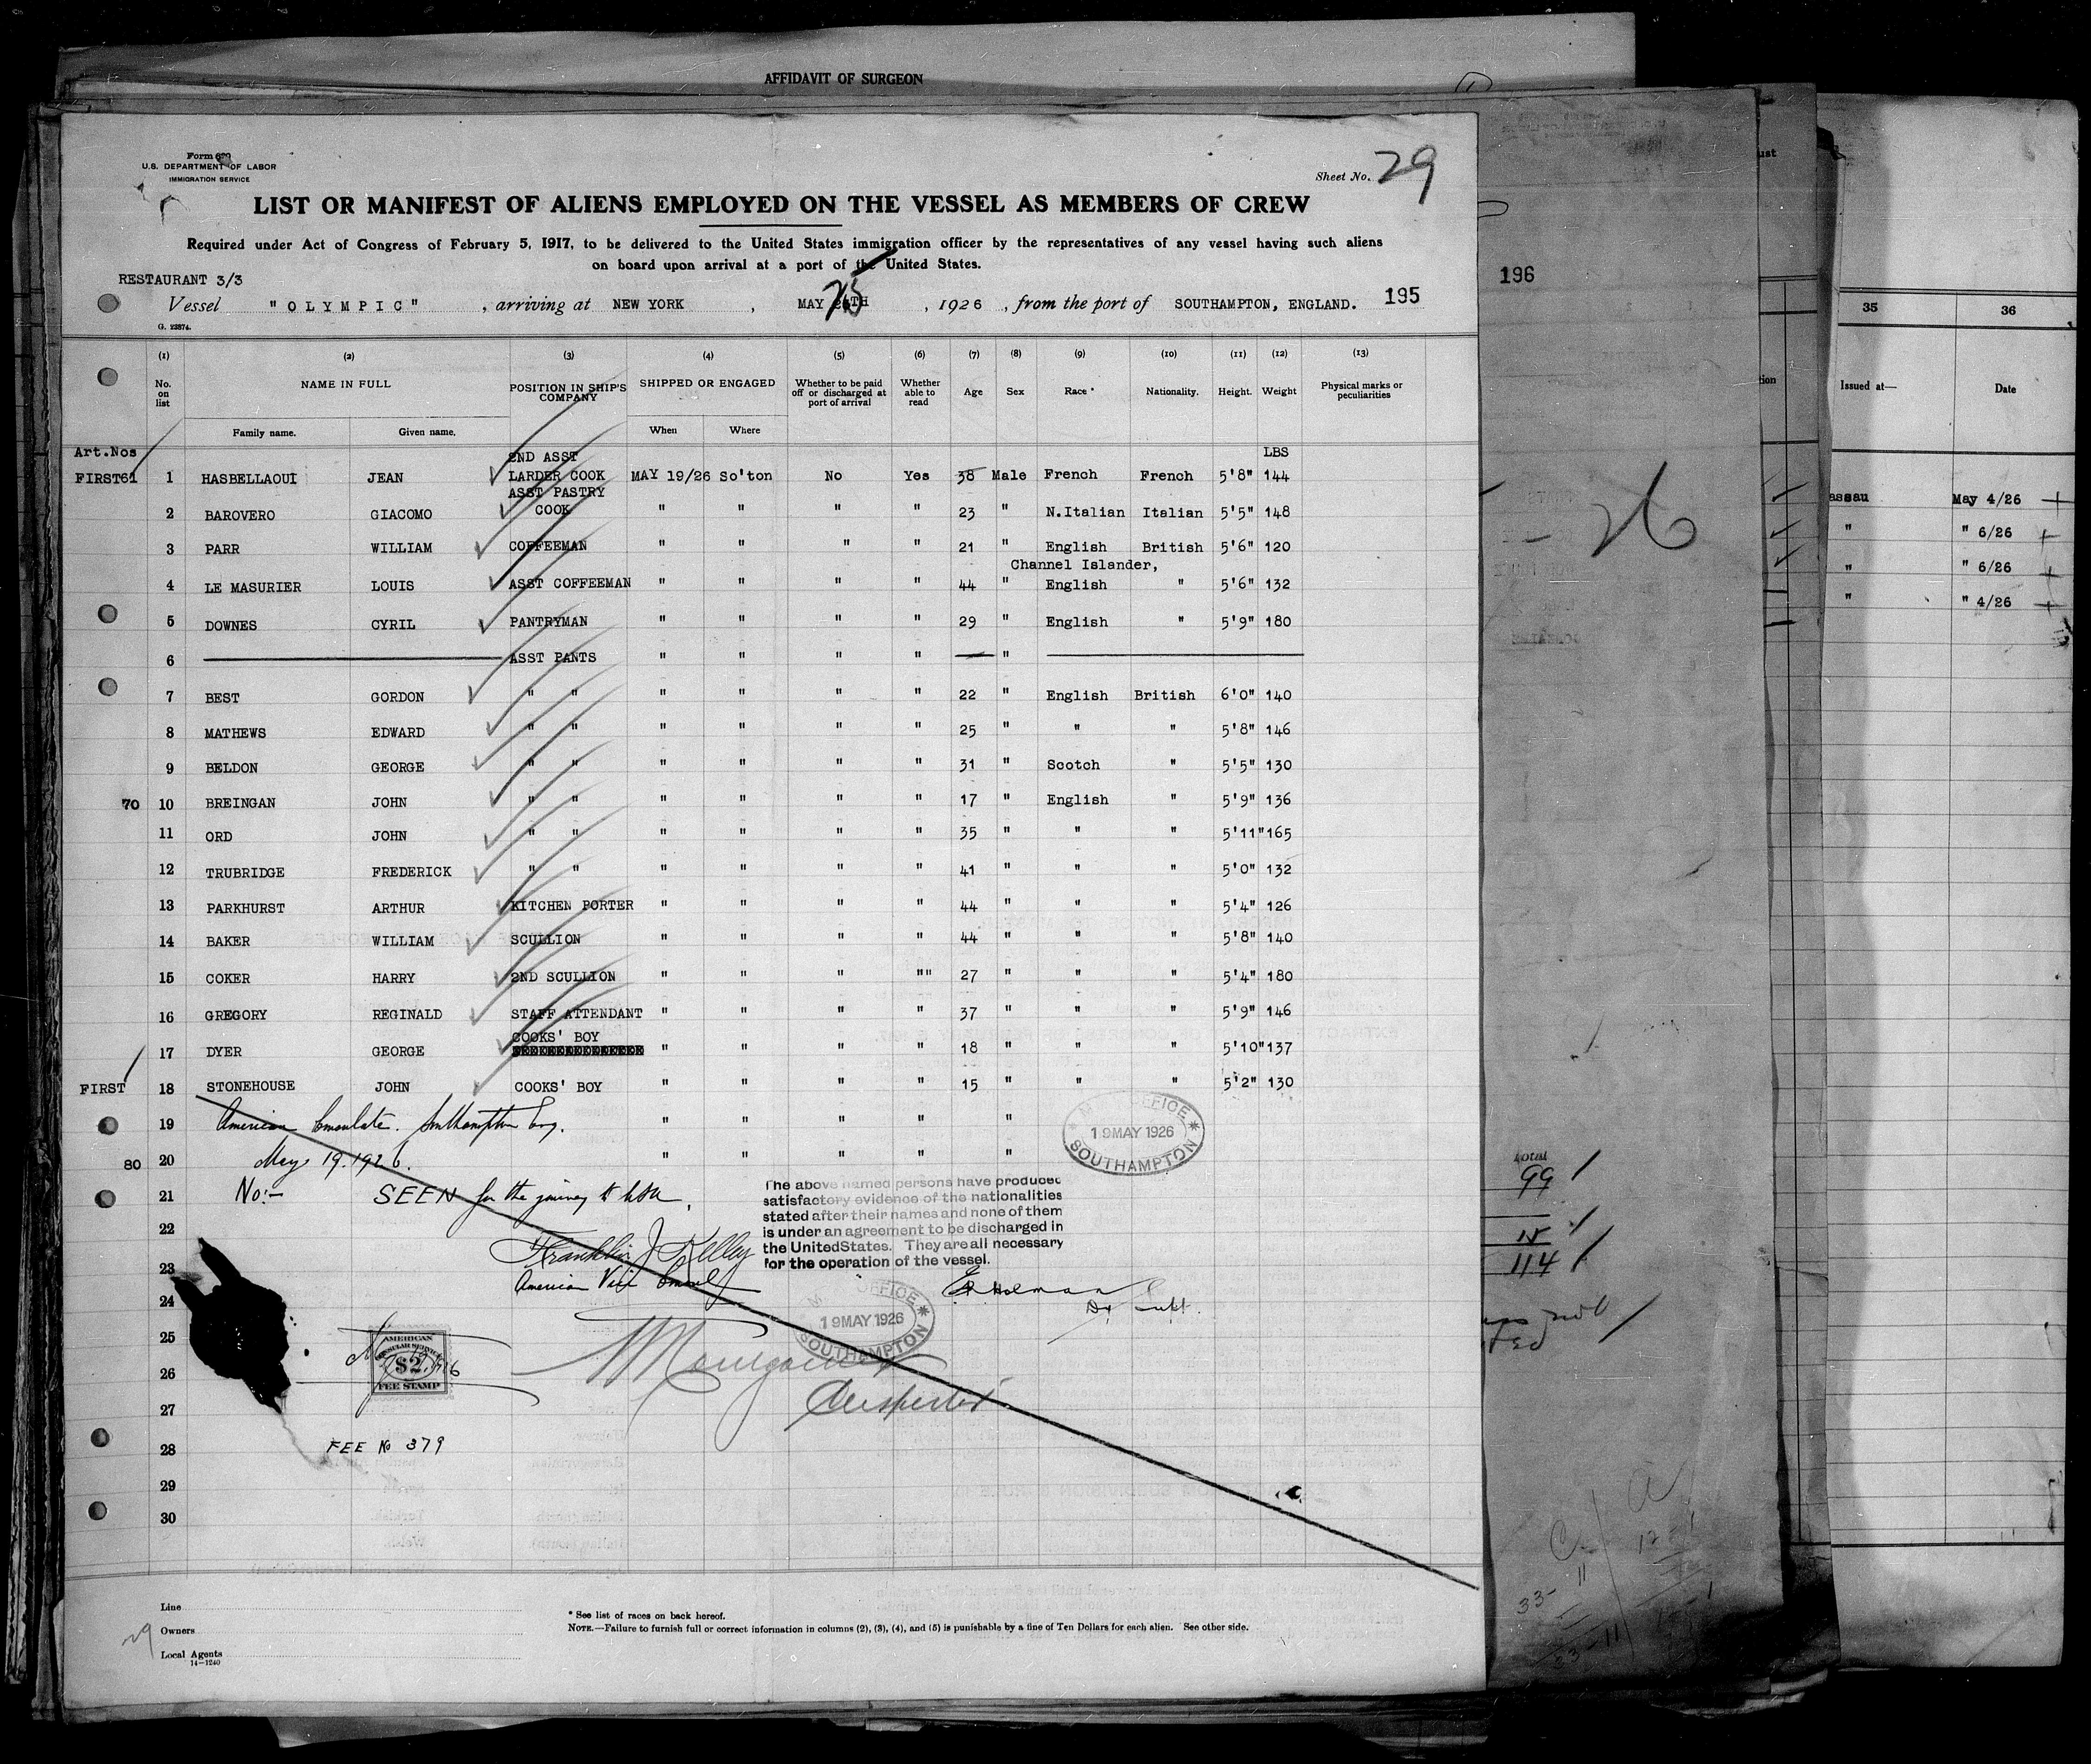 AFFIDAVIT OF SURGEON
U.S. DEPARTMENT OF LABOR
IMMIGRATION SERVICE
Sheet No. 29
LIST OR MANIFEST OF ALIENS EMPLOYED ON THE VESSEL AS MEMBERS OF CREW
Required under Act of Congress of February 5, 1917, to be delivered to the United States immigration officer by the representatives of any vessel having such aliens
on board upon arrival at a port of the United States.
RESTAURANT 3/3
Vessel "OLYMPIC" , arriving at NEW YORK , MAY 25 TH , 1926 , from the port of SOUTHAMPTON, ENGLAND. 195
G. 22874.
(1) (2) (3) (4) (5) (6) (7) (8) (9) (10) (11) (12) (13)
No. on list NAME IN FULL POSITION IN SHIP'S COMPANY SHIPPED OR ENGAGED Whether to be paid off or discharged at port of arrival Whether able to read Age Sex Race * Nationality. Height. Weight Physical marks or peculiarities
Family name. Given name. When Where
Art.Nos 2ND ASST LBS
FIRST61 1 HASBELLAOUI JEAN LARDER COOK MAY 19/26 So'ton No Yes 38 Male French French 5'8" 144
ASST PASTRY
2 BAROVERO GIACOMO COOK " " " " 23 " N.Italian Italian 5'5" 148
3 PARR WILLIAM COFFEEMAN " " " " 21 " English British 5'6" 120
Channel Islander,
4 LE MASURIER LOUIS ASST COFFEEMAN " " " " 44 " English " 5'6" 132
5 DOWNES CYRIL PANTRYMAN " " " " 29 " English " 5'9" 180
6 ASST PANTS " " " " "
7 BEST GORDON " " " " " " 22 " English British 6'0" 140
8 MATHEWS EDWARD " " " " " " 25 " " " 5'8" 146
9 BELDON GEORGE " " " " " " 31 " Scotch " 5'5" 130
70 10 BREINGAN JOHN " " " " " " 17 " English " 5'9" 136
11 ORD JOHN " " " " " " 35 " " " 5'11" 165
12 TRUBRIDGE FREDERICK " " " " " " 41 " " " 5'0" 132
13 PARKHURST ARTHUR KITCHEN PORTER " " " " 44 " " " 5'4" 126
14 BAKER WILLIAM SCULLION " " " " 44 " " " 5'8" 140
15 COKER HARRY 2ND SCULLION " " " "" 27 " " " 5'4" 180
16 GREGORY REGINALD STAFF ATTENDANT " " " " 37 " " " 5'9" 146
COOKS' BOY
17 DYER GEORGE " " " " 18 " " " 5'10" 137
FIRST 18 STONEHOUSE JOHN COOKS' BOY " " " " 15 " " " 5'2" 130
19 American Consulate. Southampton Eng. " " " " "
80 20 May 19. 1926. " " " " "
19 MAY 1926
SOUTHAMPTON
21 No:- SEEN for the journey to USA
The above named persons have produced
satisfactory evidence of the nationalities
stated after their names and none of them
is under an agreement to be discharged in
the United States. They are all necessary
for the operation of the vessel.
22
Franklin J Kelley
23 American Vice Consul
24
19 MAY 1926
SOUTHAMPTON
25
AMERICAN
CONSULAR SERVICE
$2
FEE STAMP
26
27
28 FEE No 379
29
30
Line
Owners
Local Agents
14-1240
* See list of races on back hereof.
NOTE.—Failure to furnish full or correct information in columns (2), (3), (4), and (5) is punishable by a fine of Ten Dollars for each alien. See other side.
29
196
26
total
99
15
114
35 36
Issued at— Date
assau May 4/26
" " 6/26
" " 6/26
" " 4/26